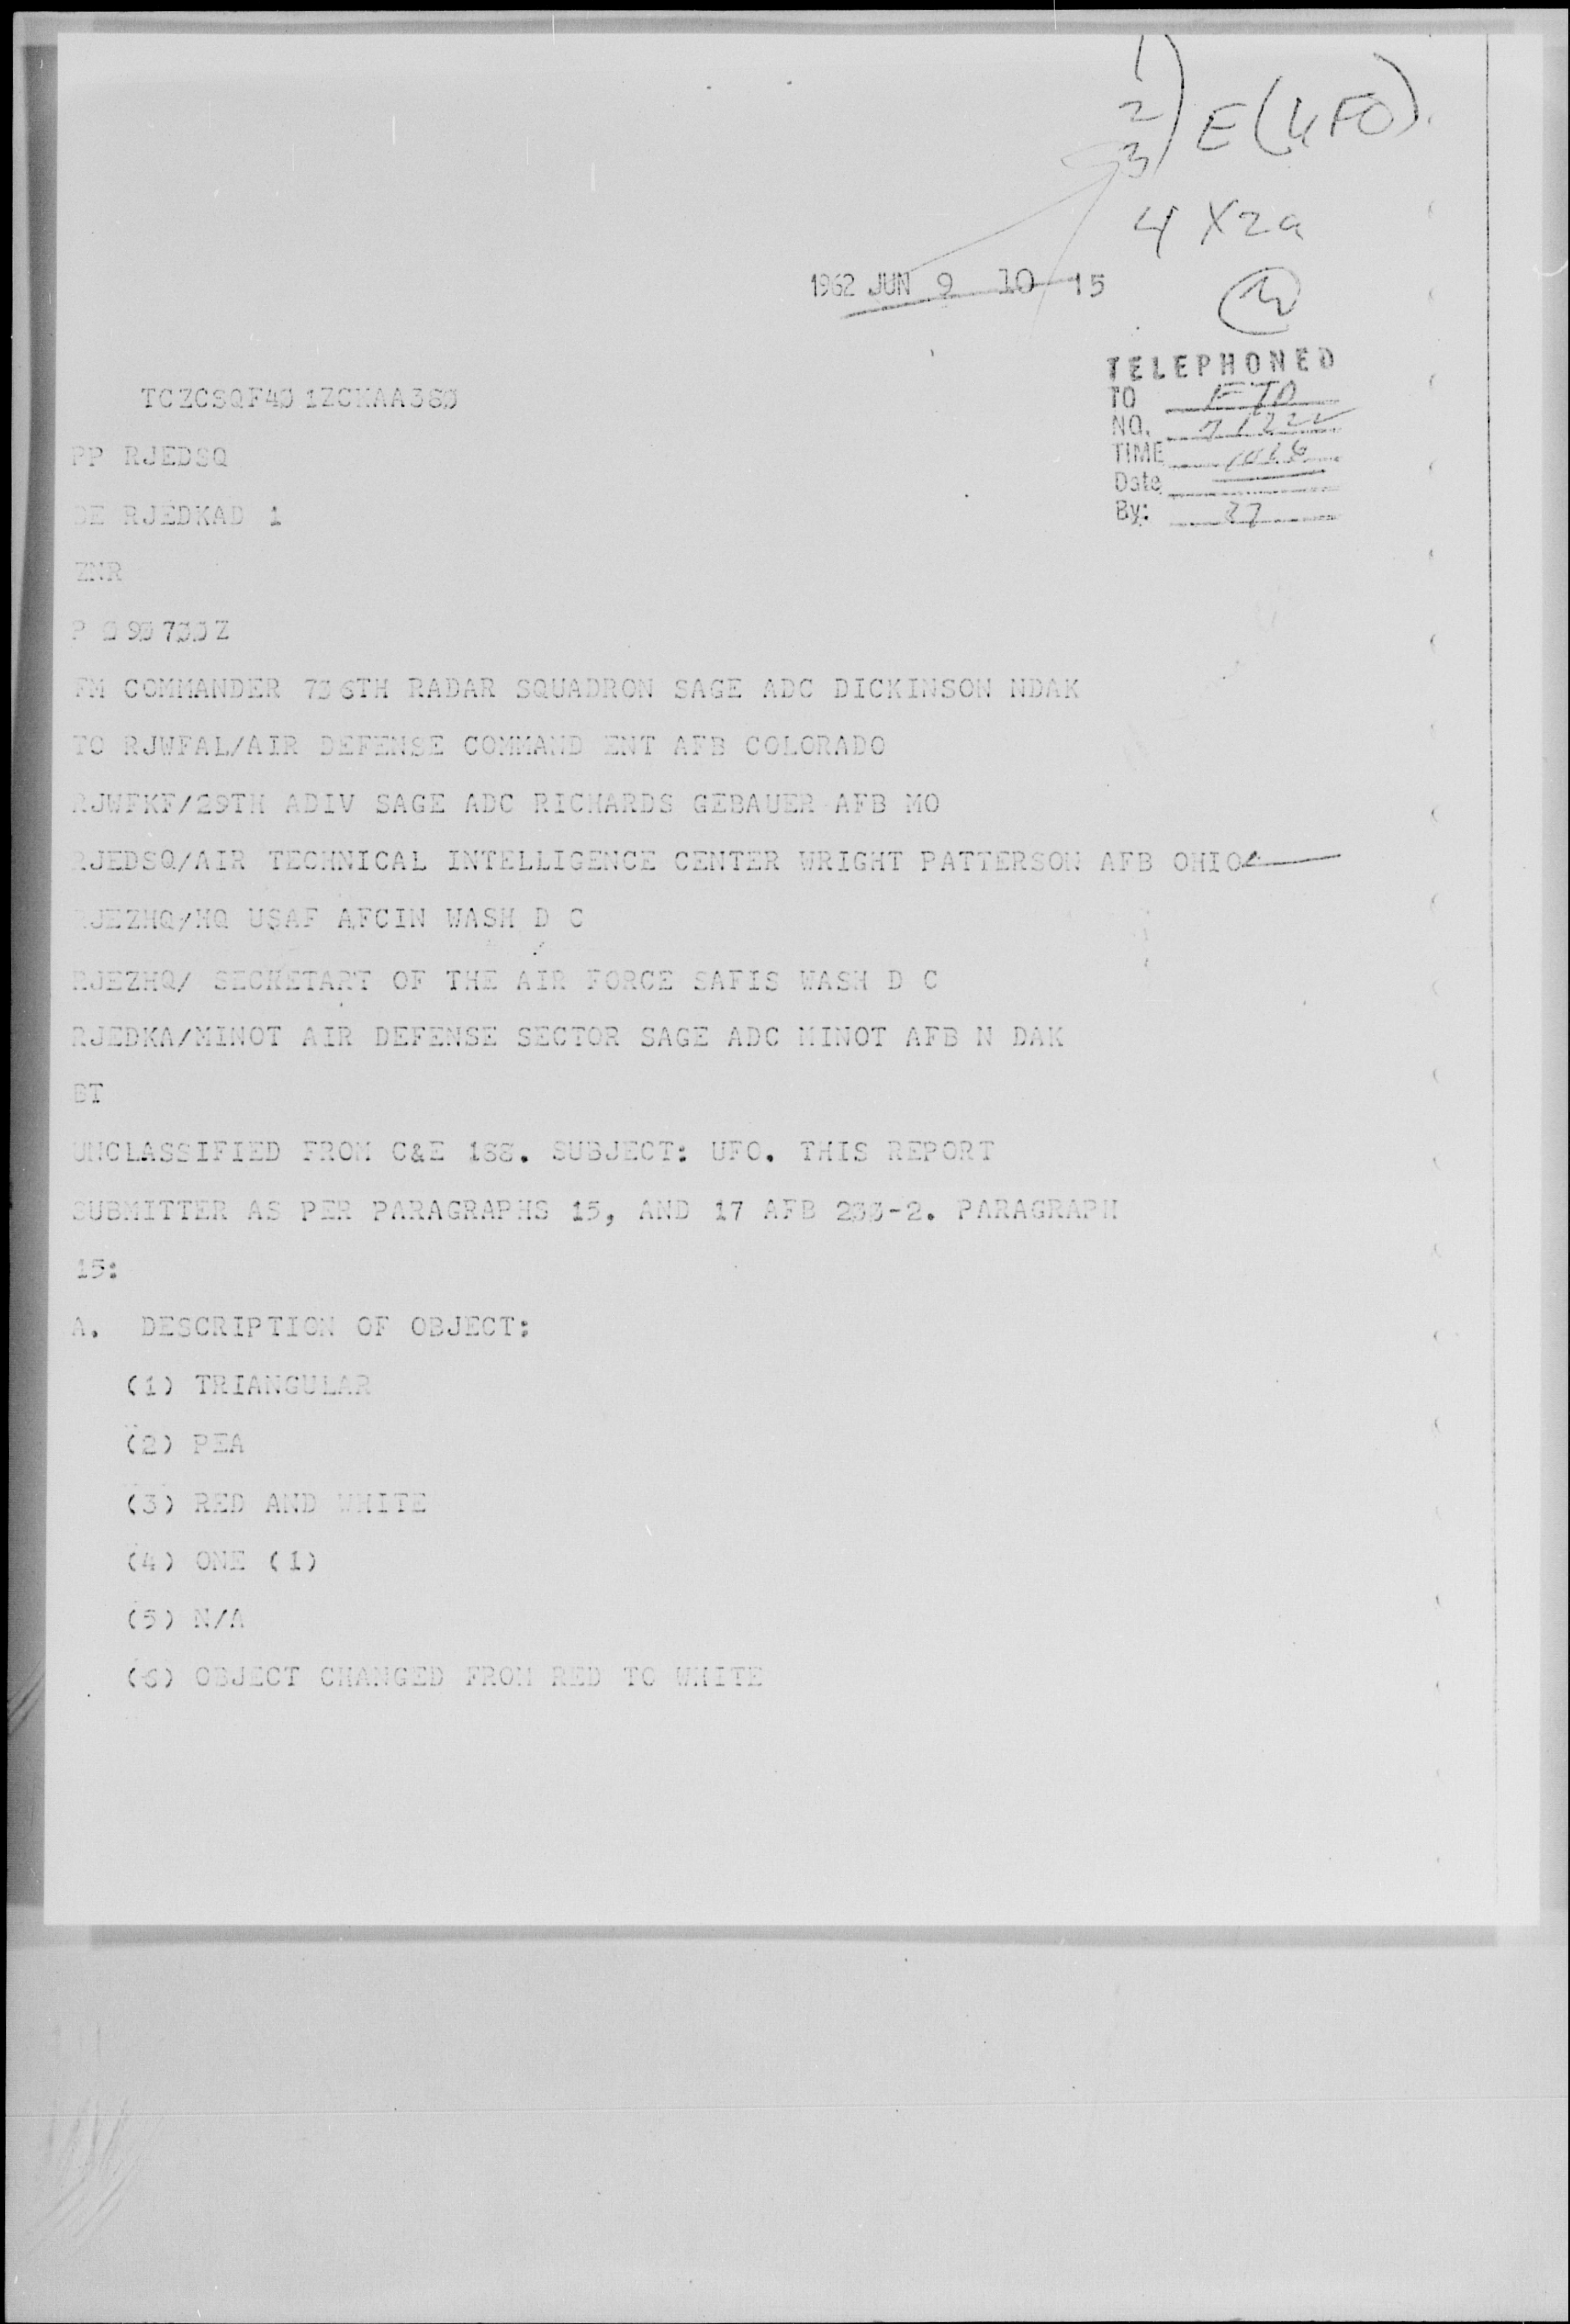 1
2
3) E (UFO).
4 X2a
1962 JUN 9 10 15
TELEPHONED
TO FTD
NO. 71222
TIME 1026
Date
By: 27
TCZCSQF40 1ZCKAA380
PP RJEDSQ
DE RJEDKAD 1
ZNR
P 090700Z
FM COMMANDER 706TH RADAR SQUADRON SAGE ADC DICKINSON NDAK
TO RJWFAL/AIR DEFENSE COMMAND ENT AFB COLORADO
RJWFKF/29TH ADIV SAGE ADC RICHARDS GEBAUER AFB MO
RJEDSQ/AIR TECHNICAL INTELLIGENCE CENTER WRIGHT PATTERSON AFB OHIO
RJEZHQ/HQ USAF AFCIN WASH D C
RJEZHQ/ SECKETART OF THE AIR FORCE SAFIS WASH D C
RJEDKA/MINOT AIR DEFENSE SECTOR SAGE ADC MINOT AFB N DAK
BT
UNCLASSIFIED FROM C&E 188. SUBJECT: UFO. THIS REPORT
SUBMITTER AS PER PARAGRAPHS 15, AND 17 AFB 200-2. PARAGRAPH
15:
A. DESCRIPTION OF OBJECT:
(1) TRIANGULAR
(2) PEA
(3) RED AND WHITE
(4) ONE (1)
(5) N/A
(6) OBJECT CHANGED FROM RED TO WHITE